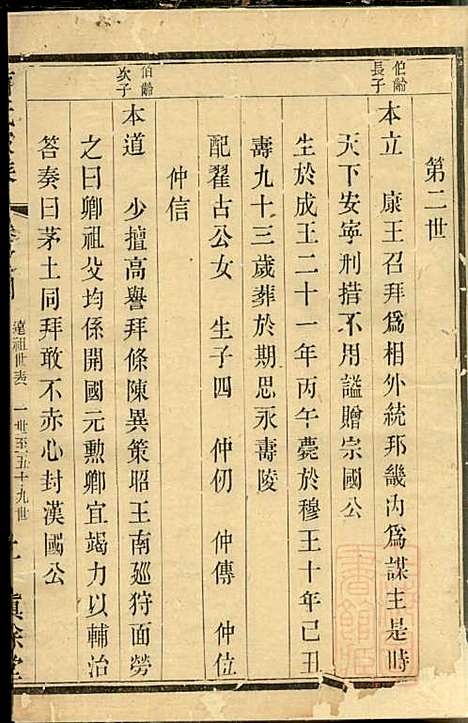 第二世
伯齡
長子
本立 康王召拜爲相外統邦畿內爲謀主是時
天下安寧刑措不用謚贈宗國公
生於成王二十一年丙午薨於穆王十年己丑
壽九十三歲葬於期思永壽陵
配翟古公女 生子四 仲仞 仲傳 仲位
仲信
伯齡
次子
本道 少擅高譽拜條陳異策昭王南廵狩面勞
之曰卿祖父均係開國元勲卿宜竭力以輔治
答奏曰茅土同拜敢不赤心封漢國公
遠祖世表 一世至五十九世